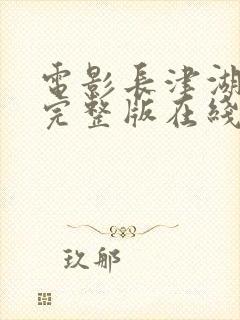 電影長津湖
完整版在綫
玖郍